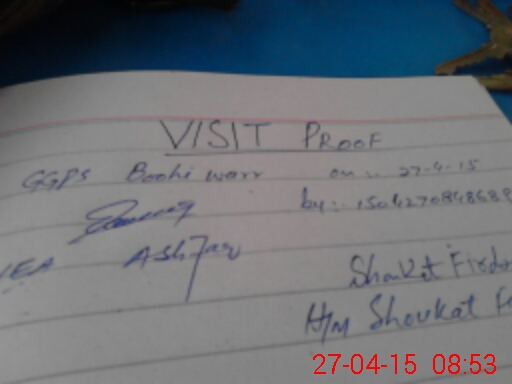 VISIT PROOF
GGPS Boohi warr on :. 27-4-15
by:- 1504270848689
MEA Ashfaq
Shakat Firdo
H/M Shoukat Fe
27-04-15 08:53